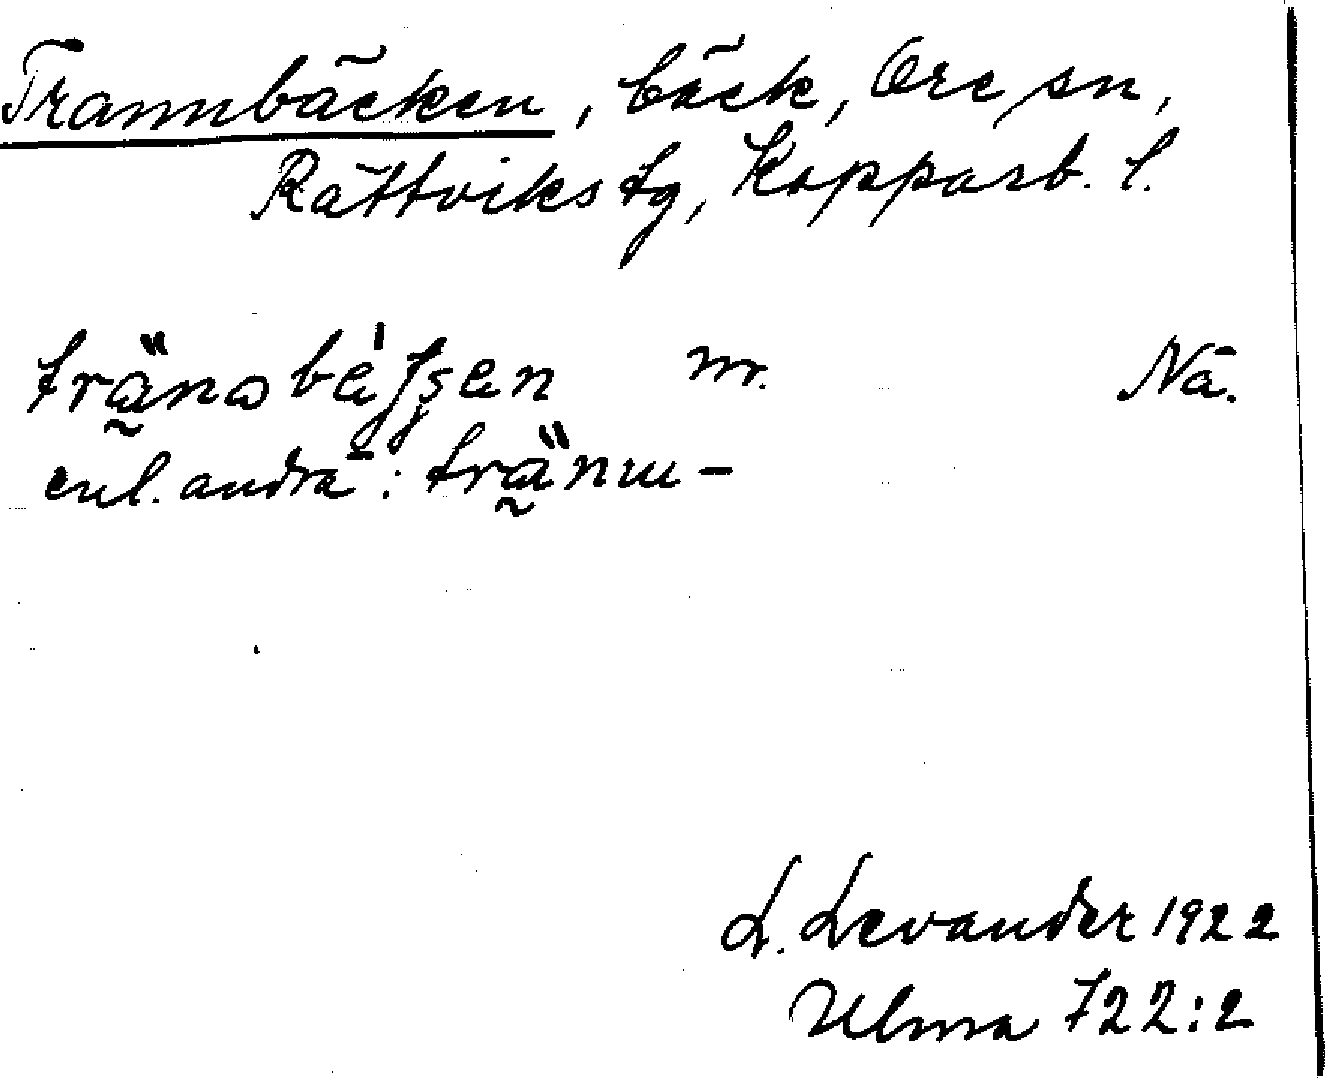 Trannbäcken, bäck, Ore sn,
Rättviks tg, Kopparb. l.
m. Nä.
enl. andra: tränω-
L. Levander 1922
Ulma 722:2